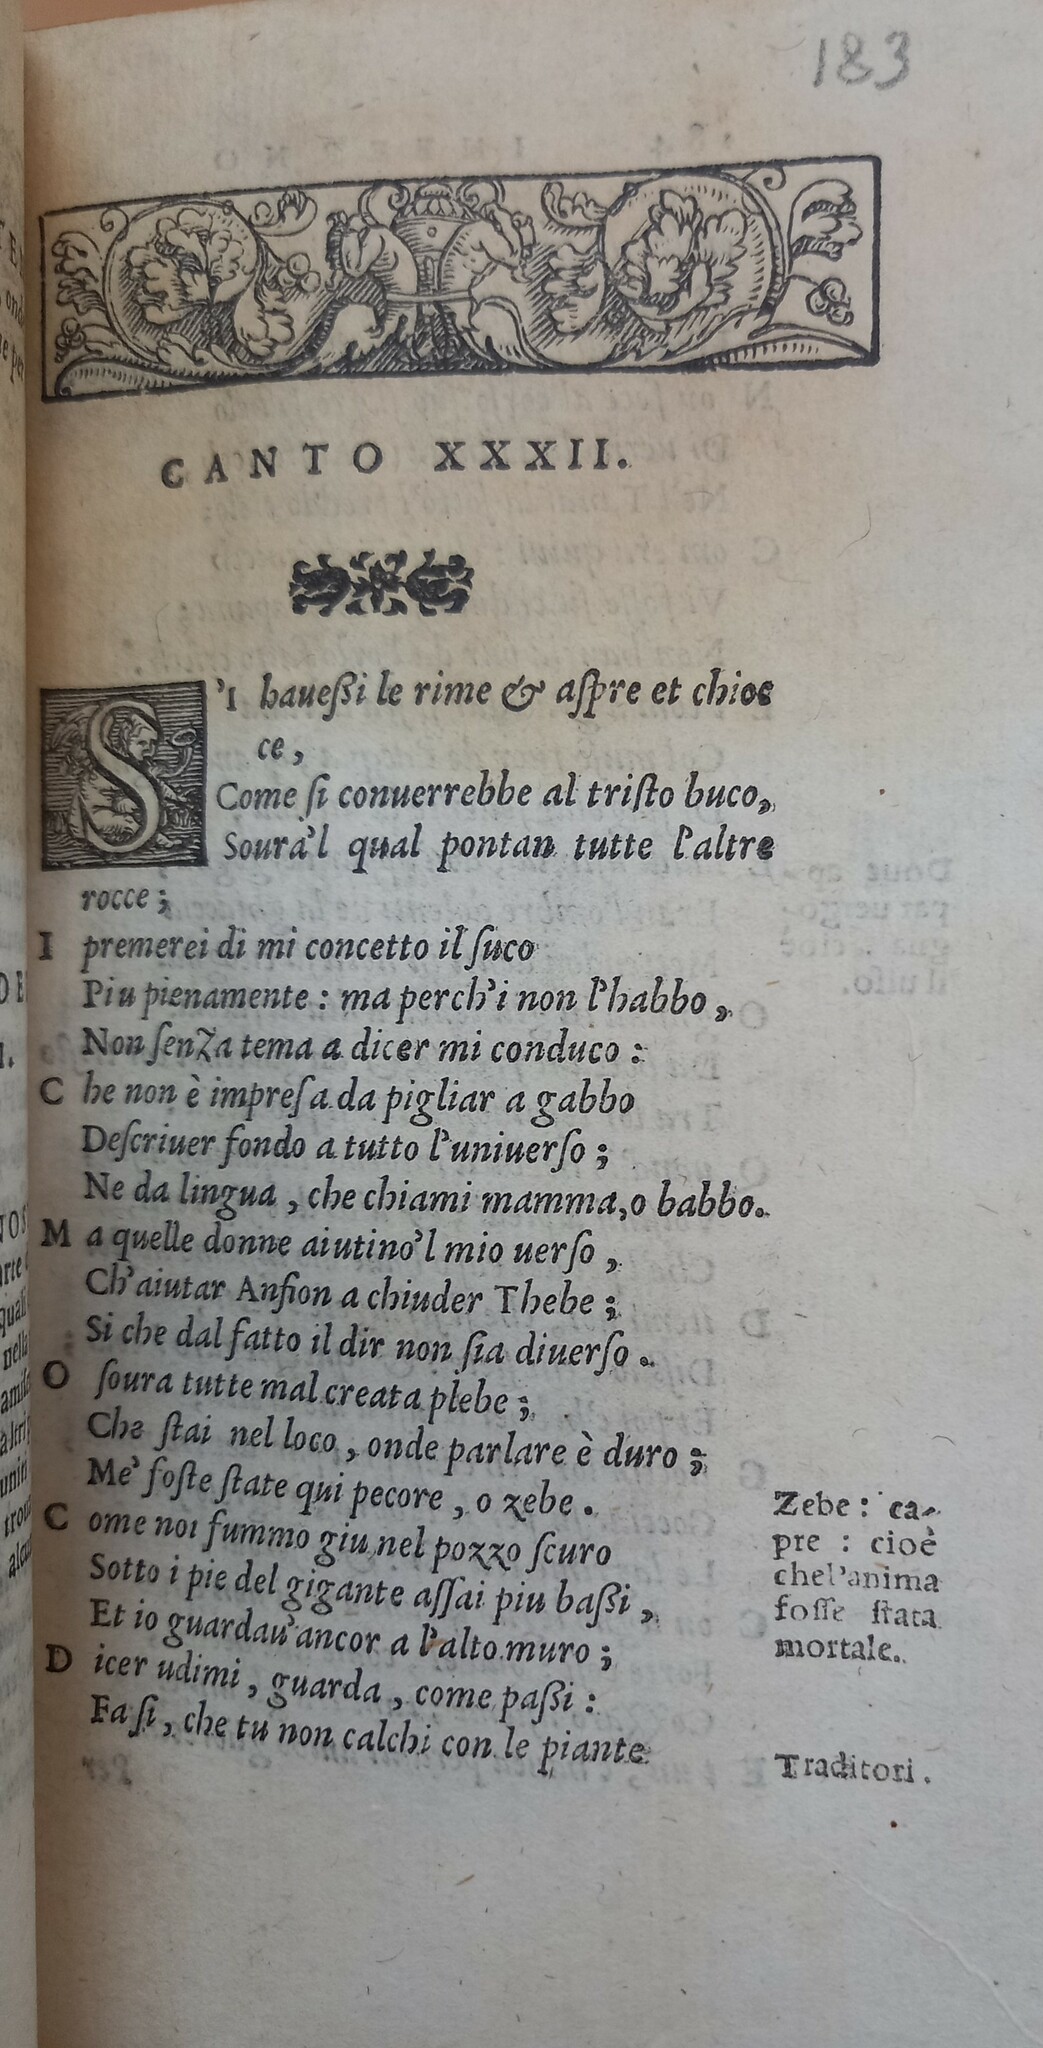 183
CANTO XXXII.
S'I haueßi le rime & aſpre et chioc
ce,
Come ſi conuerrebbe al triſto buco,
Soura'l qual pontan tutte l'altre
rocce;
I premerei di mi concetto il ſuco
Piu pienamente: ma perch'i non l'habbo,
Non ſenza tema a dicer mi conduco:
C he non è impreſa da pigliar a gabbo
Deſcriuer fondo a tutto l'uniuerſo;
Ne da lingua, che chiami mamma, o babbo.
M a quelle donne aiutino'l mio uerſo,
Ch'aiutar Anfion a chiuder Thebe;
Si che dal fatto il dir non ſia diuerſo.
O ſoura tutte mal creata plebe;
Che ſtai nel loco, onde parlare è duro;
Me' foſte ſtate qui pecore, o zebe.
C ome noi fummo giu nel pozzo ſcuro
Sotto i pie del gigante aſſai piu baßi,
Et io guardau'ancor a l'alto muro;
D icer udimi, guarda, come paßi:
Fa ſi, che tu non calchi con le piante
Zebe: ca-
pre: cioè
chel'anima
foſſe ſtata
mortale.
Traditori.